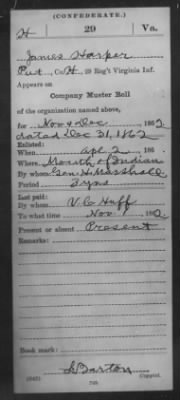 (CONFEDERATE.)
H 29 Va.
James Harper
Pvt, Co. H, 29 Reg't Virginia Inf.
Appears on
Company Muster Roll
of the organization named above,
for Nov & Dec, 1862
dated Dec 31, 1862
Enlisted:
When Apl 2, 186
Where Mouth of Indian
By whom Gen. H. Marshall
Period 3 yrs
Last paid:
By whom V. C. Huff
To what time Nov 1, 1862
Present or absent Present
Remarks:
Book mark:
(642) S Barton
Copyist.